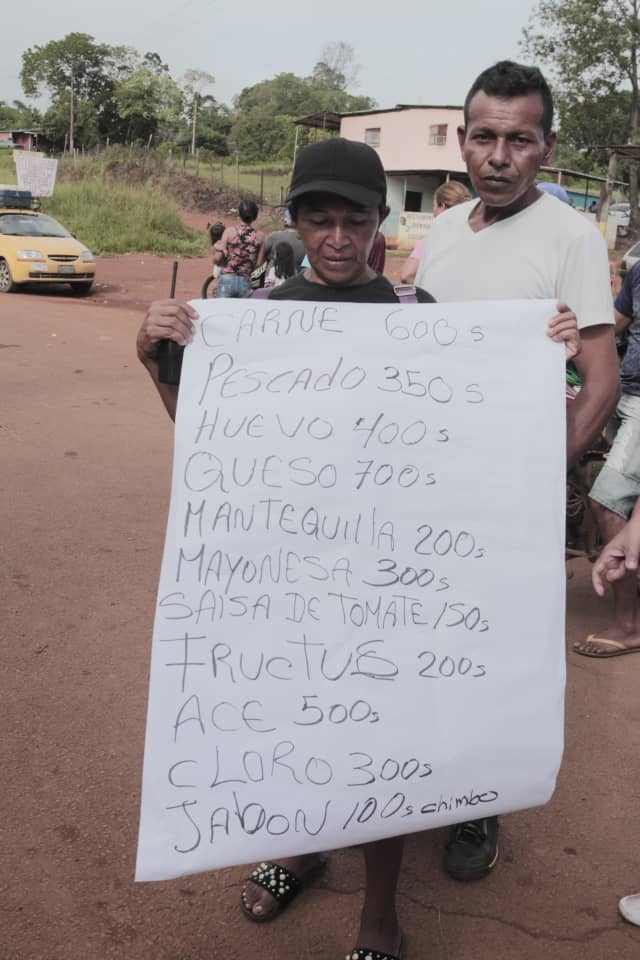 CARNE 600s
PESCADO 350s
HUEVO 400s
QUESO 700s
MANTEQUILLA 200s
MAYONESA 300s
SALSA DE TOMATE 150s
FRUCTUS 200s
ACE 500s
CLORO 300s
JABON 100s chimbo